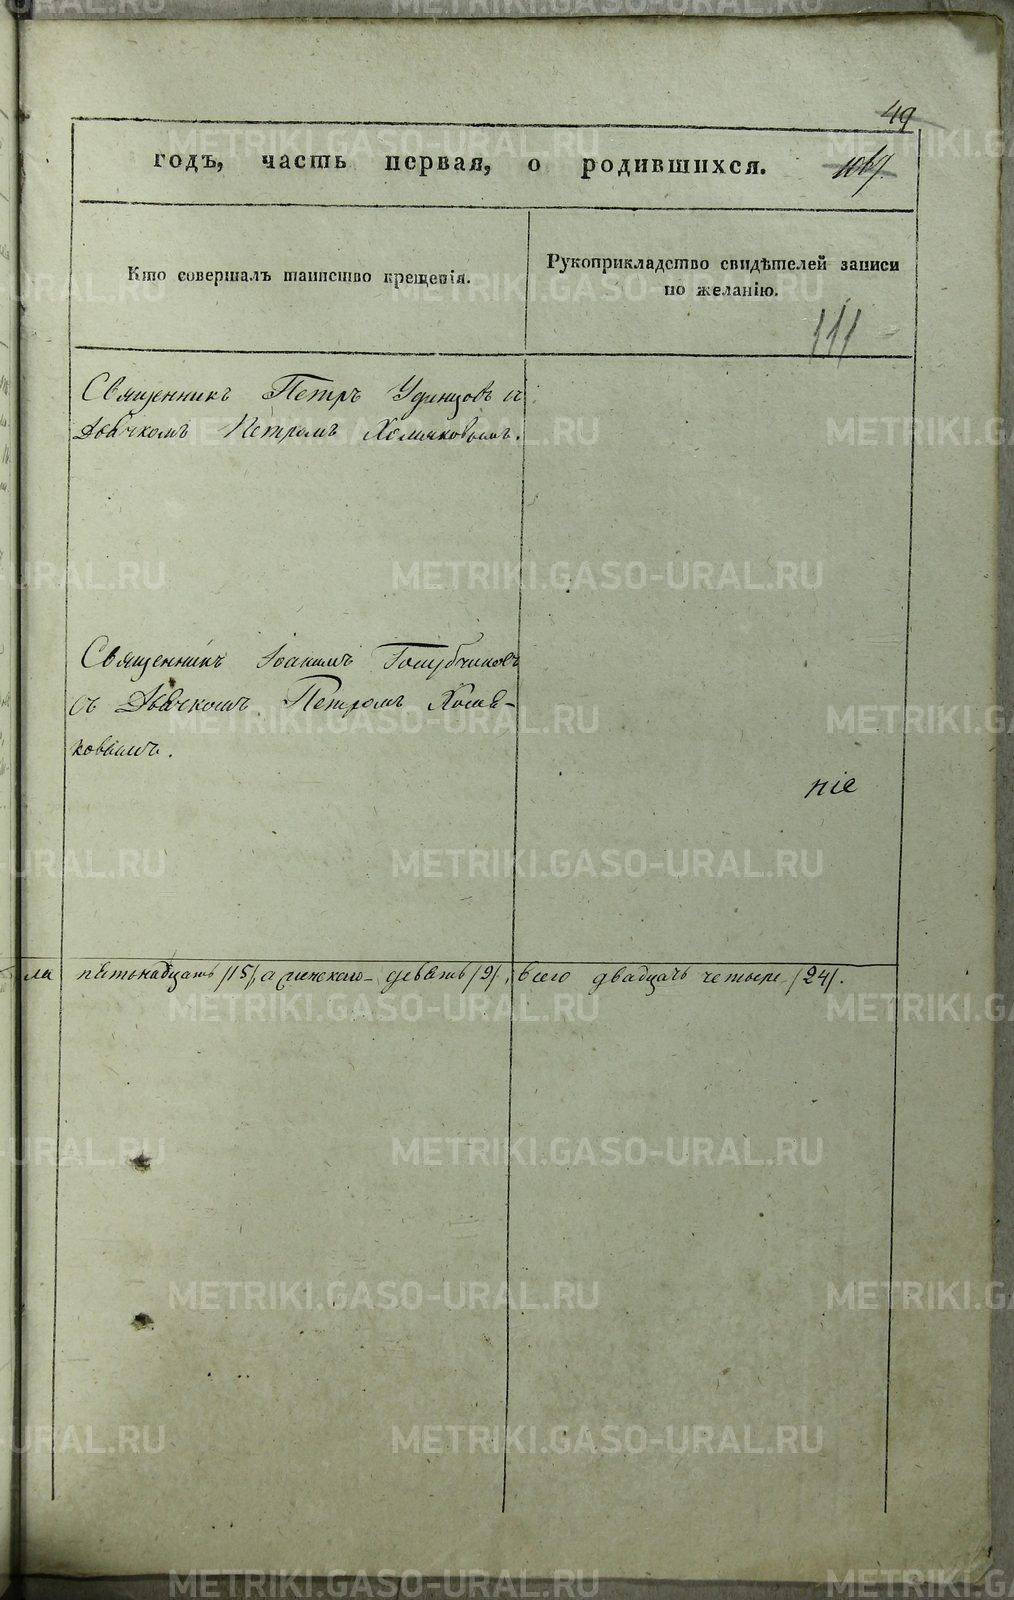 49
годъ, часть первая, о родившихся. 1067.
Кто совершалъ таинство крещенія.
Рукоприкладство свидѣтелей записи
по желанію.
111
Священникъ Петръ Удинцовъ съ
Дьячкомъ Петромъ Хомяковымъ.
Священникъ Іоакимъ Голубчиковъ
съ Дьячкомъ Петромъ Хомя-
ковымъ.
ніе
ла пятьнадцать /15/, а женскаго девять /9/, всего двадцать четыре /24/.
METRIKI.GASO-URAL.RU